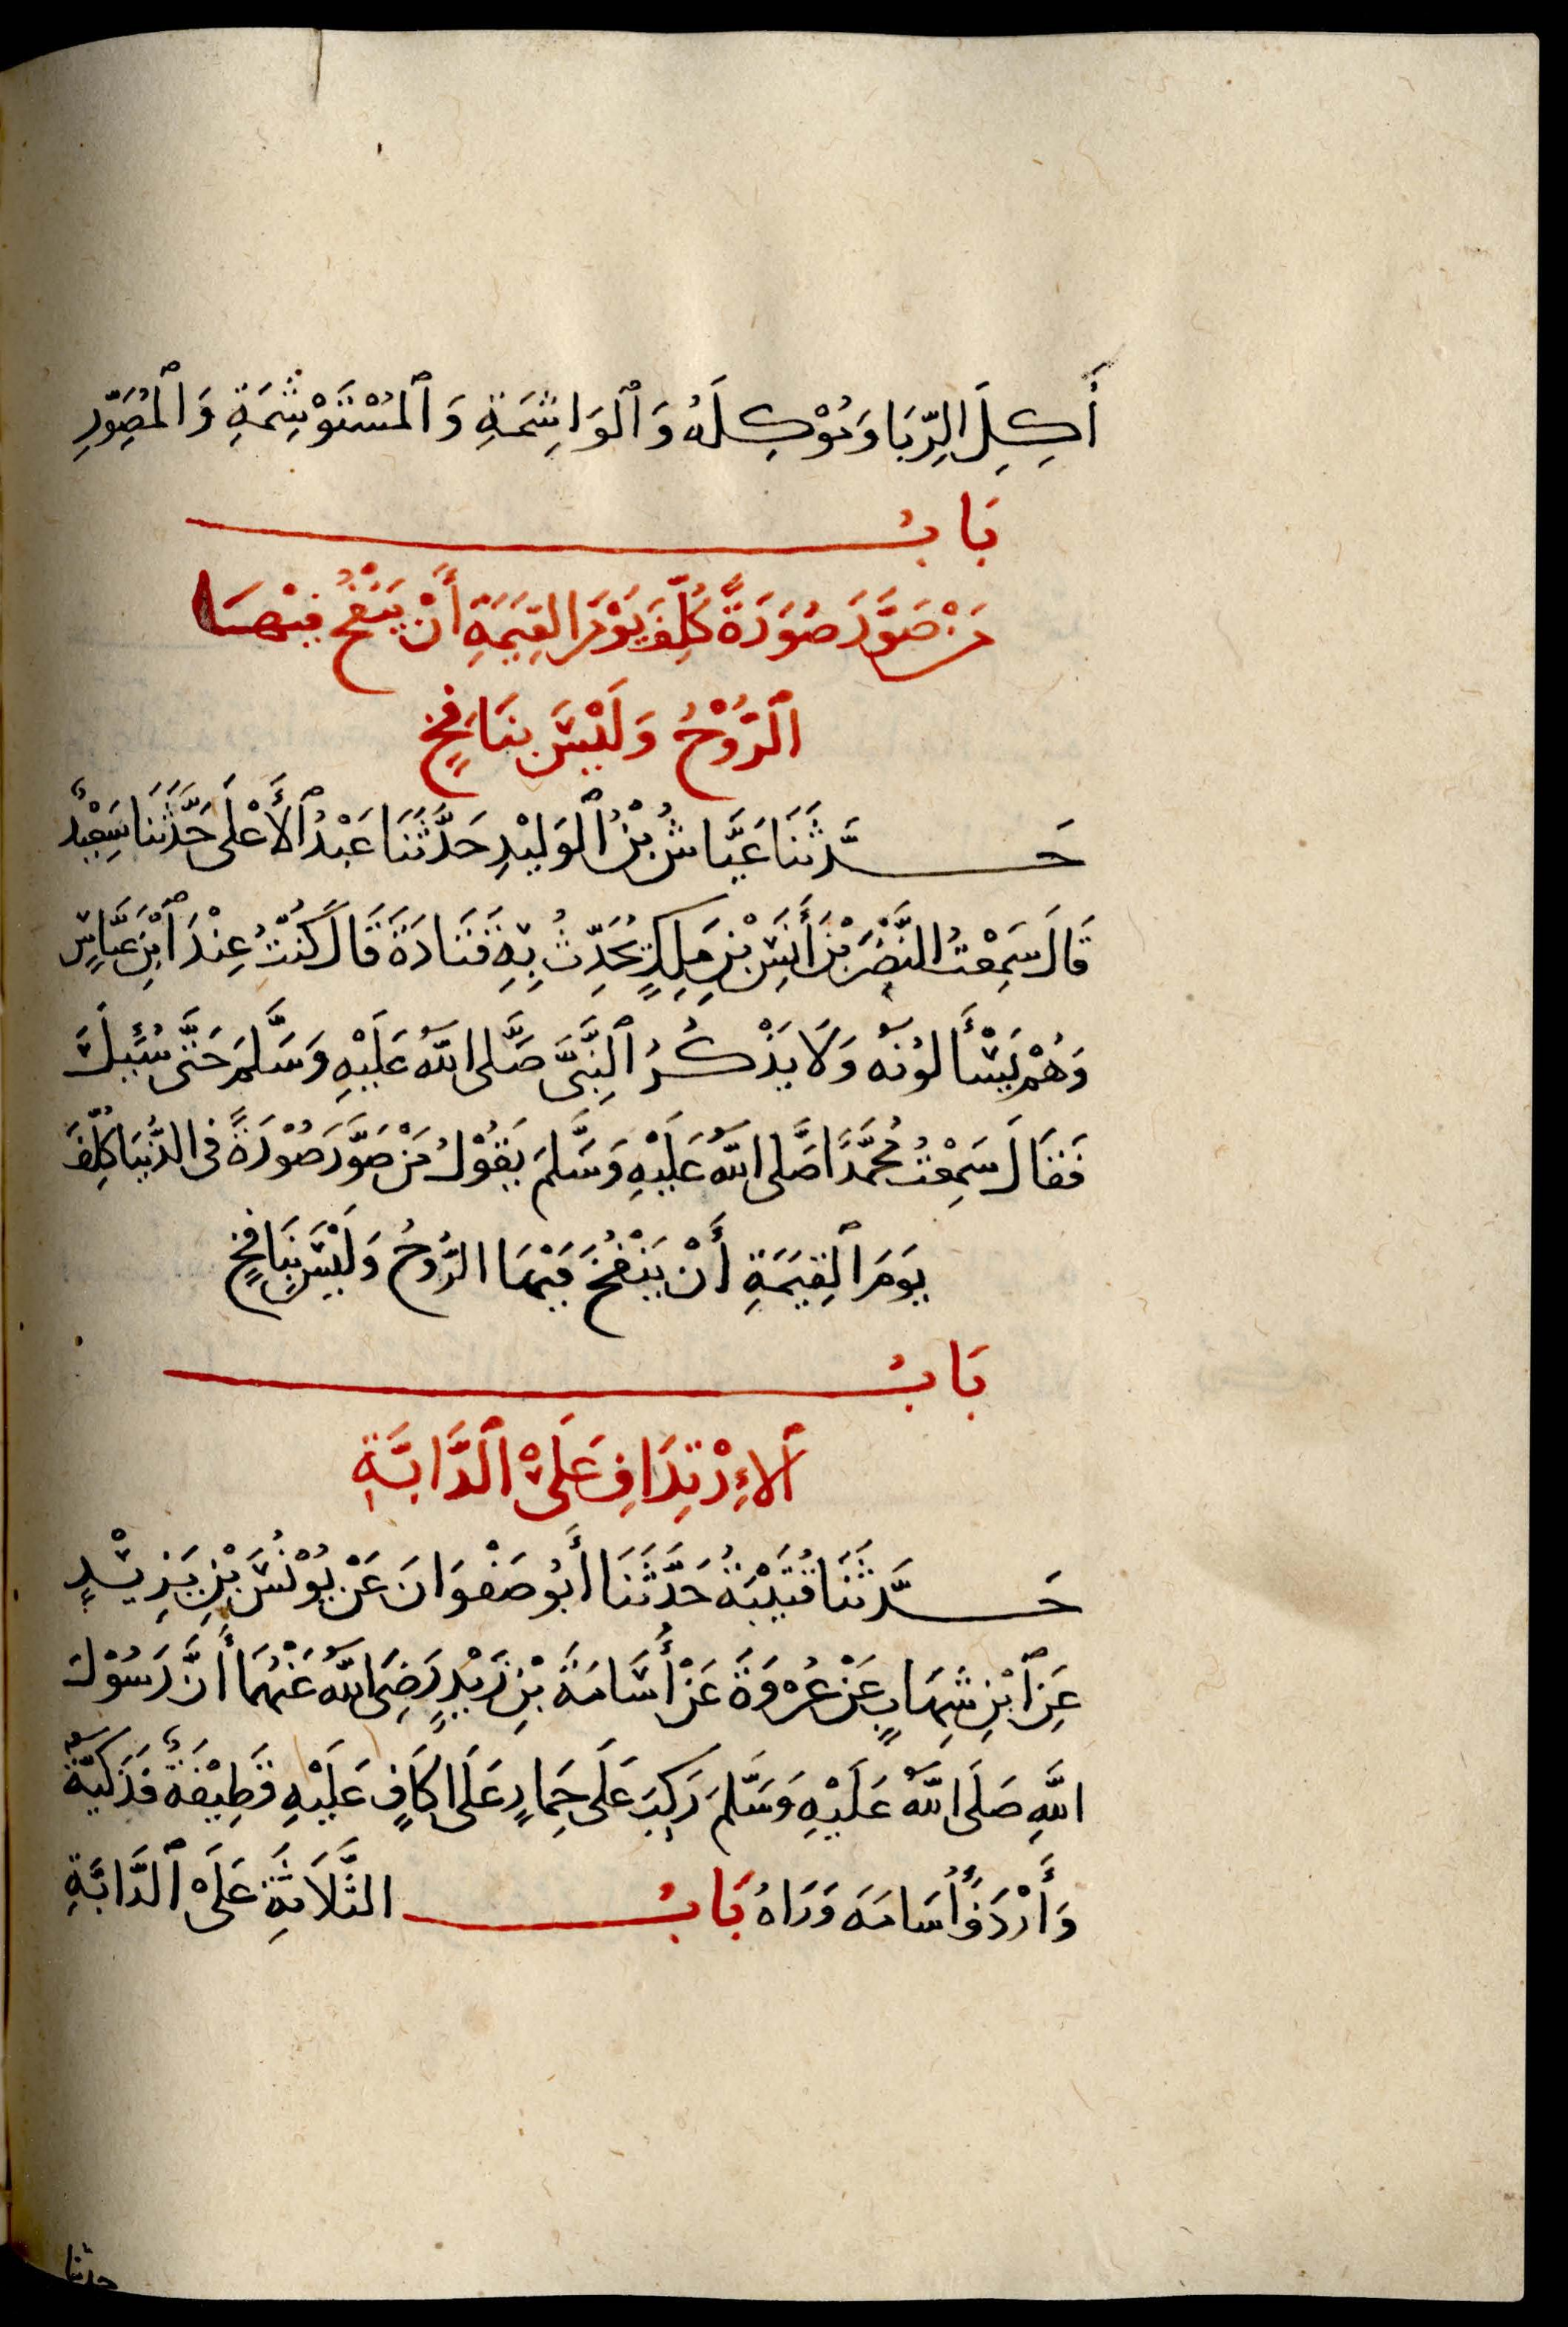 أَكِلَ الرِّبَا وَمُوْكِلَهُ وَٱلْوَاشِمَةِ وَٱلْمُسْتَوْشِمَةِ وَٱلْمُصَوِّرِ
بَابُ
مَنْ صَوَّرَ صُوَرَةً كُلِّفَ يَوْمَ القِيَمَةِ أَنْ يَنْفُخَ فِيْهَا
ٱلرُّوْحُ وَلَيْسَ بِنَافِخٍ
حَدَّثَنَا عَيَّاشُ بْنُ ٱلْوَلِيْدِ حَدَّثَنَا عَبْدُ ٱلأَعْلَى حَدَّثَنَا سَعِيْدٌ
قَالَ سَمِعْتُ النَّضْرَ بْنَ أَنَسِ بْنِ مَلِكٍ يُحَدِّثُ بِهِ قَتَادَةَ قَالَ كُنْتُ عِنْدَ ٱبْنِ عَبَّاسٍ
وَهُمْ يَسْأَلُونَهُ وَلَا يَذْكُرُ ٱلنَّبِيَّ صَلَّى اللَّهُ عَلَيْهِ وَسَلَّمَ حَتَّى سُئِلَ
فَقَالَ سَمِعْتُ مُحَمَّدًا صَلَّى اللَّهُ عَلَيْهِ وَسَلَّمَ يَقُوْلُ مَنْ صَوَّرَ صُوْرَةً فِى الدُّنْيَا كُلِّفَ
يَوْمَ ٱلْقِيَمَةِ أَنْ يَنْفُخَ فِيْهَا الرُّوحُ وَلَيْسَ بِنَافِخٍ
بَابُ
ٱلاِرْتِدَافِ عَلَىْ ٱلدَّابَّةِ
حَدَّثَنَا قُتَيْبَةُ حَدَّثَنَا أَبُو صَفْوَانَ عَنْ يُوْنُسَ بْنِ يَزِيْدٍ
عَنِ ٱبْنِ شِهَابٍ عَنْ عُرْوَةَ عَنْ أُسَامَةَ بْنِ زَيْدٍ رَضِىَ اللَّهُ عَنْهُمَا أَنَّ رَسُوْلَ
اللَّهِ صَلَى اللَّهُ عَلَيْهِ وَسَلَّمَ رَكِبَ عَلَى حِمَارٍ عَلَى اكَافٍ عَلَيْهِ قَطِيْفَةٌ فَدَكِيَّةٌ
وَأَرْدَفَ أُسَامَةَ وَرَاهُ بَابُ الثَّلَاثَةِ عَلَىْ ٱلدَّابَّةِ
حدثنا